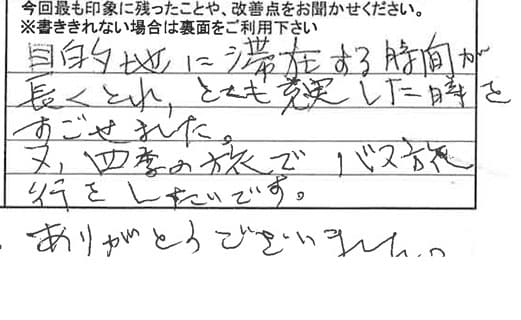 今回最も印象に残ったことや、改善点をお聞かせください。
※書ききれない場合は裏面をご利用下さい
目的地に滞在する時間が
長くとれ、とても充実した時を
すごせました。
又、四季の旅でバス旅
行をしたいです。
ありがとうございました。